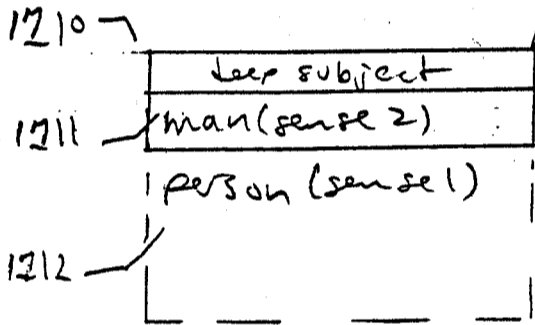 1210
deep subject
1211 man (sense 2)
person (sense 1)
1212